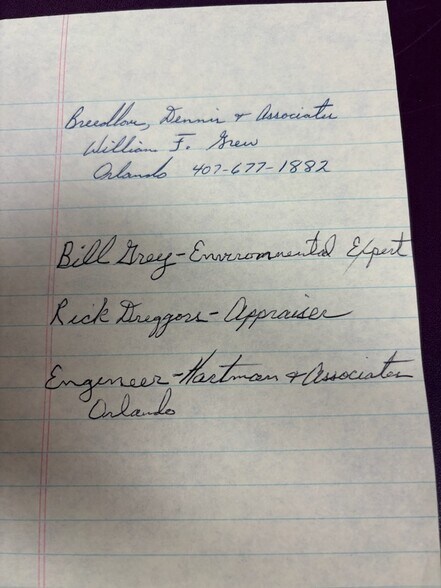 Breedlove, Dennis & Associates
William F. Grey
Orlando 407-677-1882
Bill Grey - Environmental Expert
Rick Dreggors - Appraiser
Engineer - Hartman & Associates
Orlando